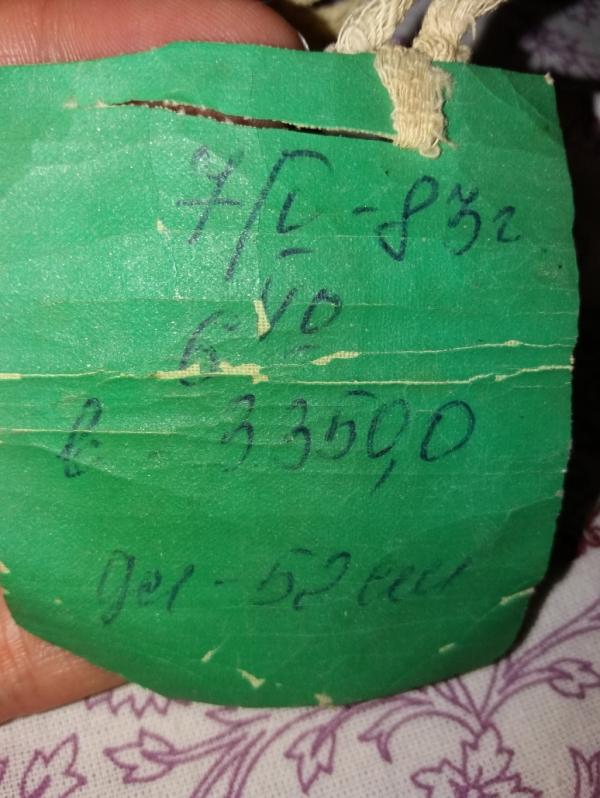 7/I -83г
6 40
в. 3350,0
дл - 52 см